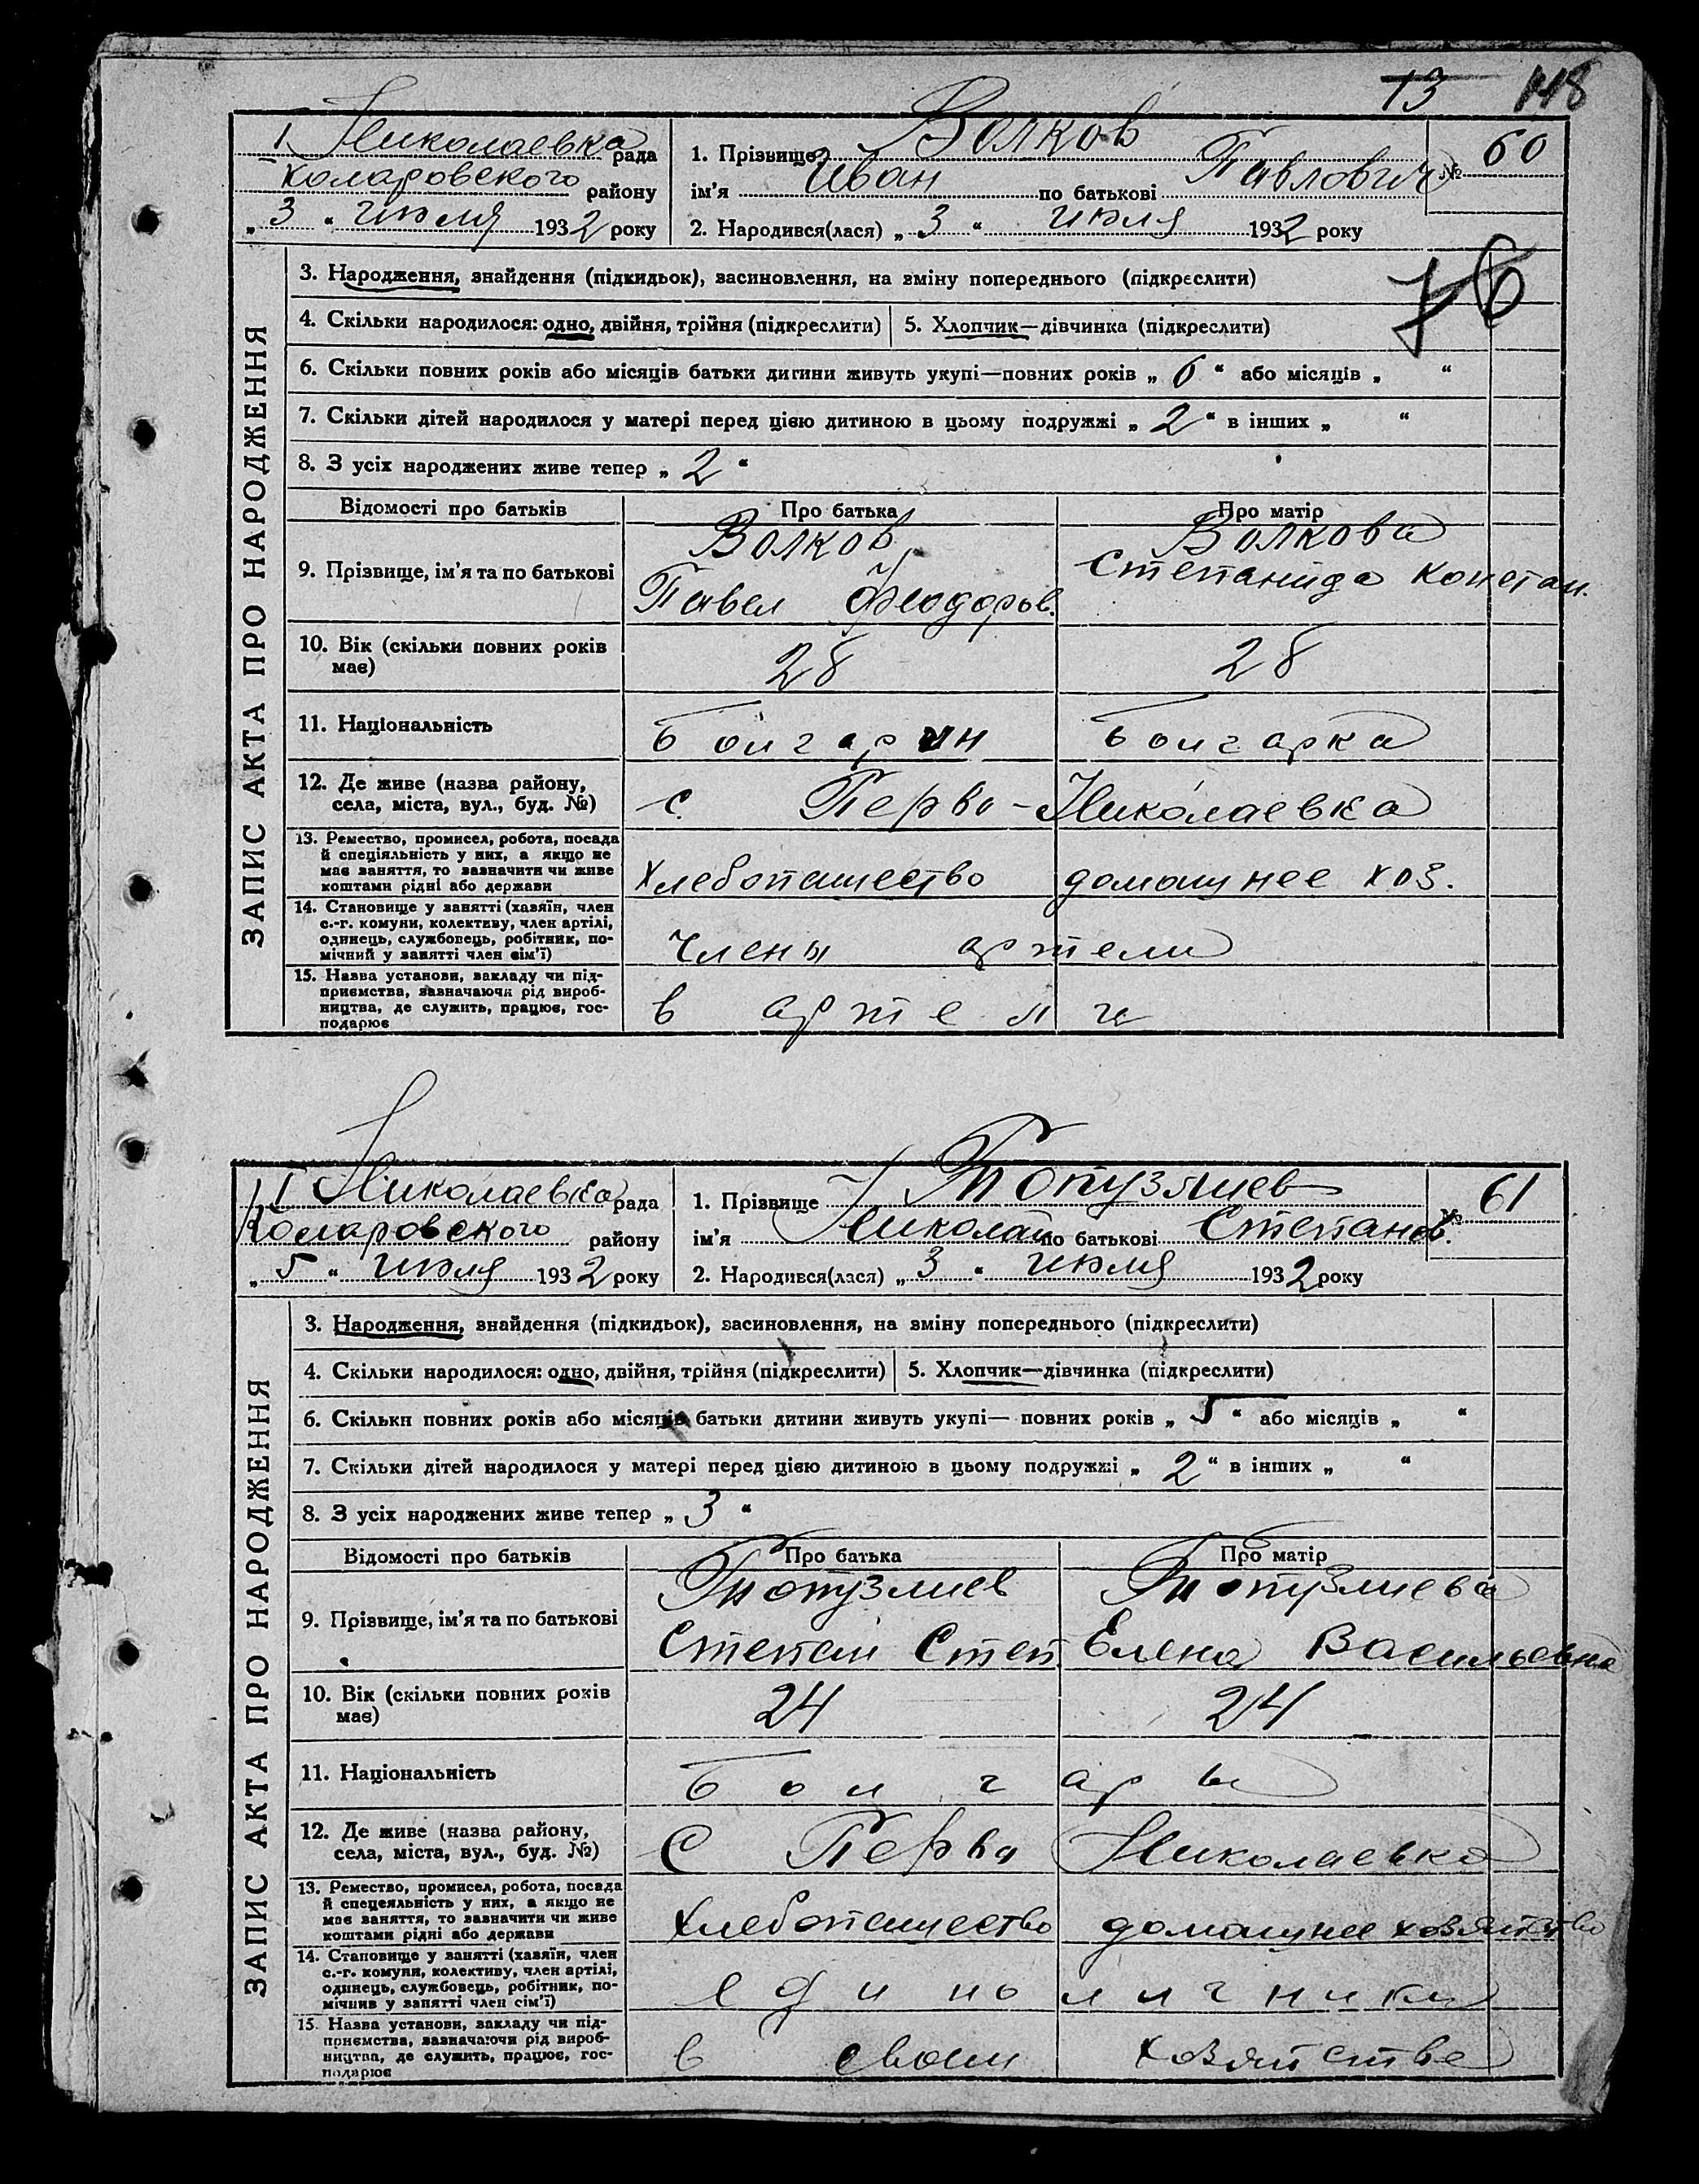 73 148
I Николаевка рада
Коларовского району
„ 3 “ июля 1932 року
1. Прізвище Волков
ім'я Иван по батькові Павлович
2. Народився(лася) „ 3 “ июля 1932 року
№ 60
ЗАПИС АКТА ПРО НАРОДЖЕННЯ
3. Народження, знайдення (підкидьок), засиновлення, на зміну попереднього (підкреслити)
76
4. Скільки народилося: одно, двійня, трійня (підкреслити) 5. Хлопчик—дівчинка (підкреслити)
6. Скільки повних років або місяців батьки дитини живуть укупі—повних років „ 6 “ або місяців „ “
7. Скільки дітей народилося у матері перед цією дитиною в цьому подружжі „ 2 “ в інших „ “
8. З усіх народжених живе тепер „ 2 “
Відомості про батьків Про батька Про матір
9. Прізвище, ім'я та по батькові
Волков
Павел Феодоров.
Волкова
Степанида Констан.
10. Вік (скільки повних років
має)
28 28
11. Національність Болгарин Болгарка
12. Де живе (назва району,
села, міста, вул., буд. №)
с. Перво-Николаевка
13. Ремество, промисел, робота, посада
й спеціяльність у них, а якщо не
має заняття, то зазначити чи живе
коштами рідні або держави
Хлебопашество домашнее хоз.
14. Становище у занятті (хазяїн, член
с.-г. комуни, колективу, член артілі,
одинець, службовець, робітник, по-
мічний у занятті член сім'ї)
члены артели
15. Назва установи, закладу чи під-
приємства, зазначаючи рід вироб-
ництва, де служить, працює, гос-
подарює
в артели
I Николаевка рада
Коларовского району
„ 5 “ июля 1932 року
1. Прізвище Топузлиев
ім'я Николай по батькові Степанов.
2. Народився(лася) „ 3 “ июля 1932 року
№ 61
ЗАПИС АКТА ПРО НАРОДЖЕННЯ
3. Народження, знайдення (підкидьок), засиновлення, на зміну попереднього (підкреслити)
4. Скільки народилося: одно, двійня, трійня (підкреслити) 5. Хлопчик—дівчинка (підкреслити)
6. Скільки повних років або місяців батьки дитини живуть укупі— повних років „ 5 “ або місяців „ “
7. Скільки дітей народилося у матері перед цією дитиною в цьому подружжі „ 2 “ в інших „ “
8. З усіх народжених живе тепер „ 3 “
Відомості про батьків Про батька Про матір
9. Прізвище, ім'я та по батькові
Топузлиев
Степан Степ.
Топузлиева
Елена Васильевна
10. Вік (скільки повних років
має)
24 24
11. Національність Болгары
12. Де живе (назва району,
села, міста, вул., буд. №)
С Перво Николаевка
13. Ремество, промисел, робота, посада
й спецеяльність у них, а якщо не
має заняття, то зазначити чи живе
коштами рідні або держави
Хлебопашество домашнее хозяйство
14. Становище у занятті (хазяїн, член
с.-г. комуни, колективу, член артілі,
одинець, службовець, робітник, по-
мічнив у занятті член сім'ї)
единоличники
15. Назва установи, закладу чи під-
приємства, зазначаючи рід вироб-
ництва, де служить, працює, гос-
подарює
в своем хозяйстве